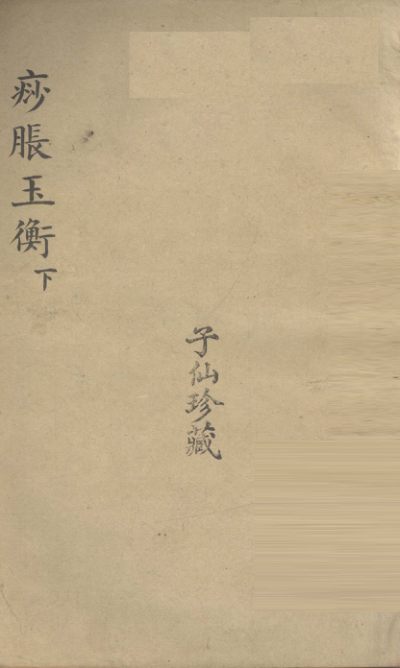 子仙珍藏
痧脹玉衡下